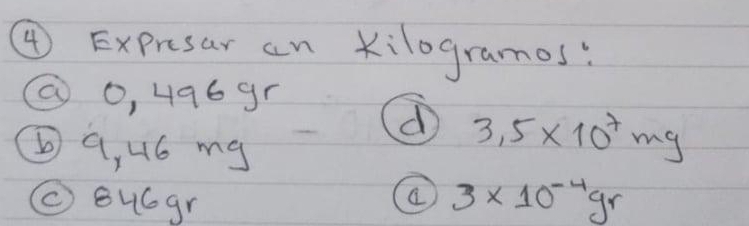 ④ Expresar en Kilogramos:
ⓐ 0,496 gr
ⓑ 9,46 mg
ⓒ 846 gr
ⓓ 3,5 × 10⁷ mg
ⓔ 3 × 10⁻⁴ gr